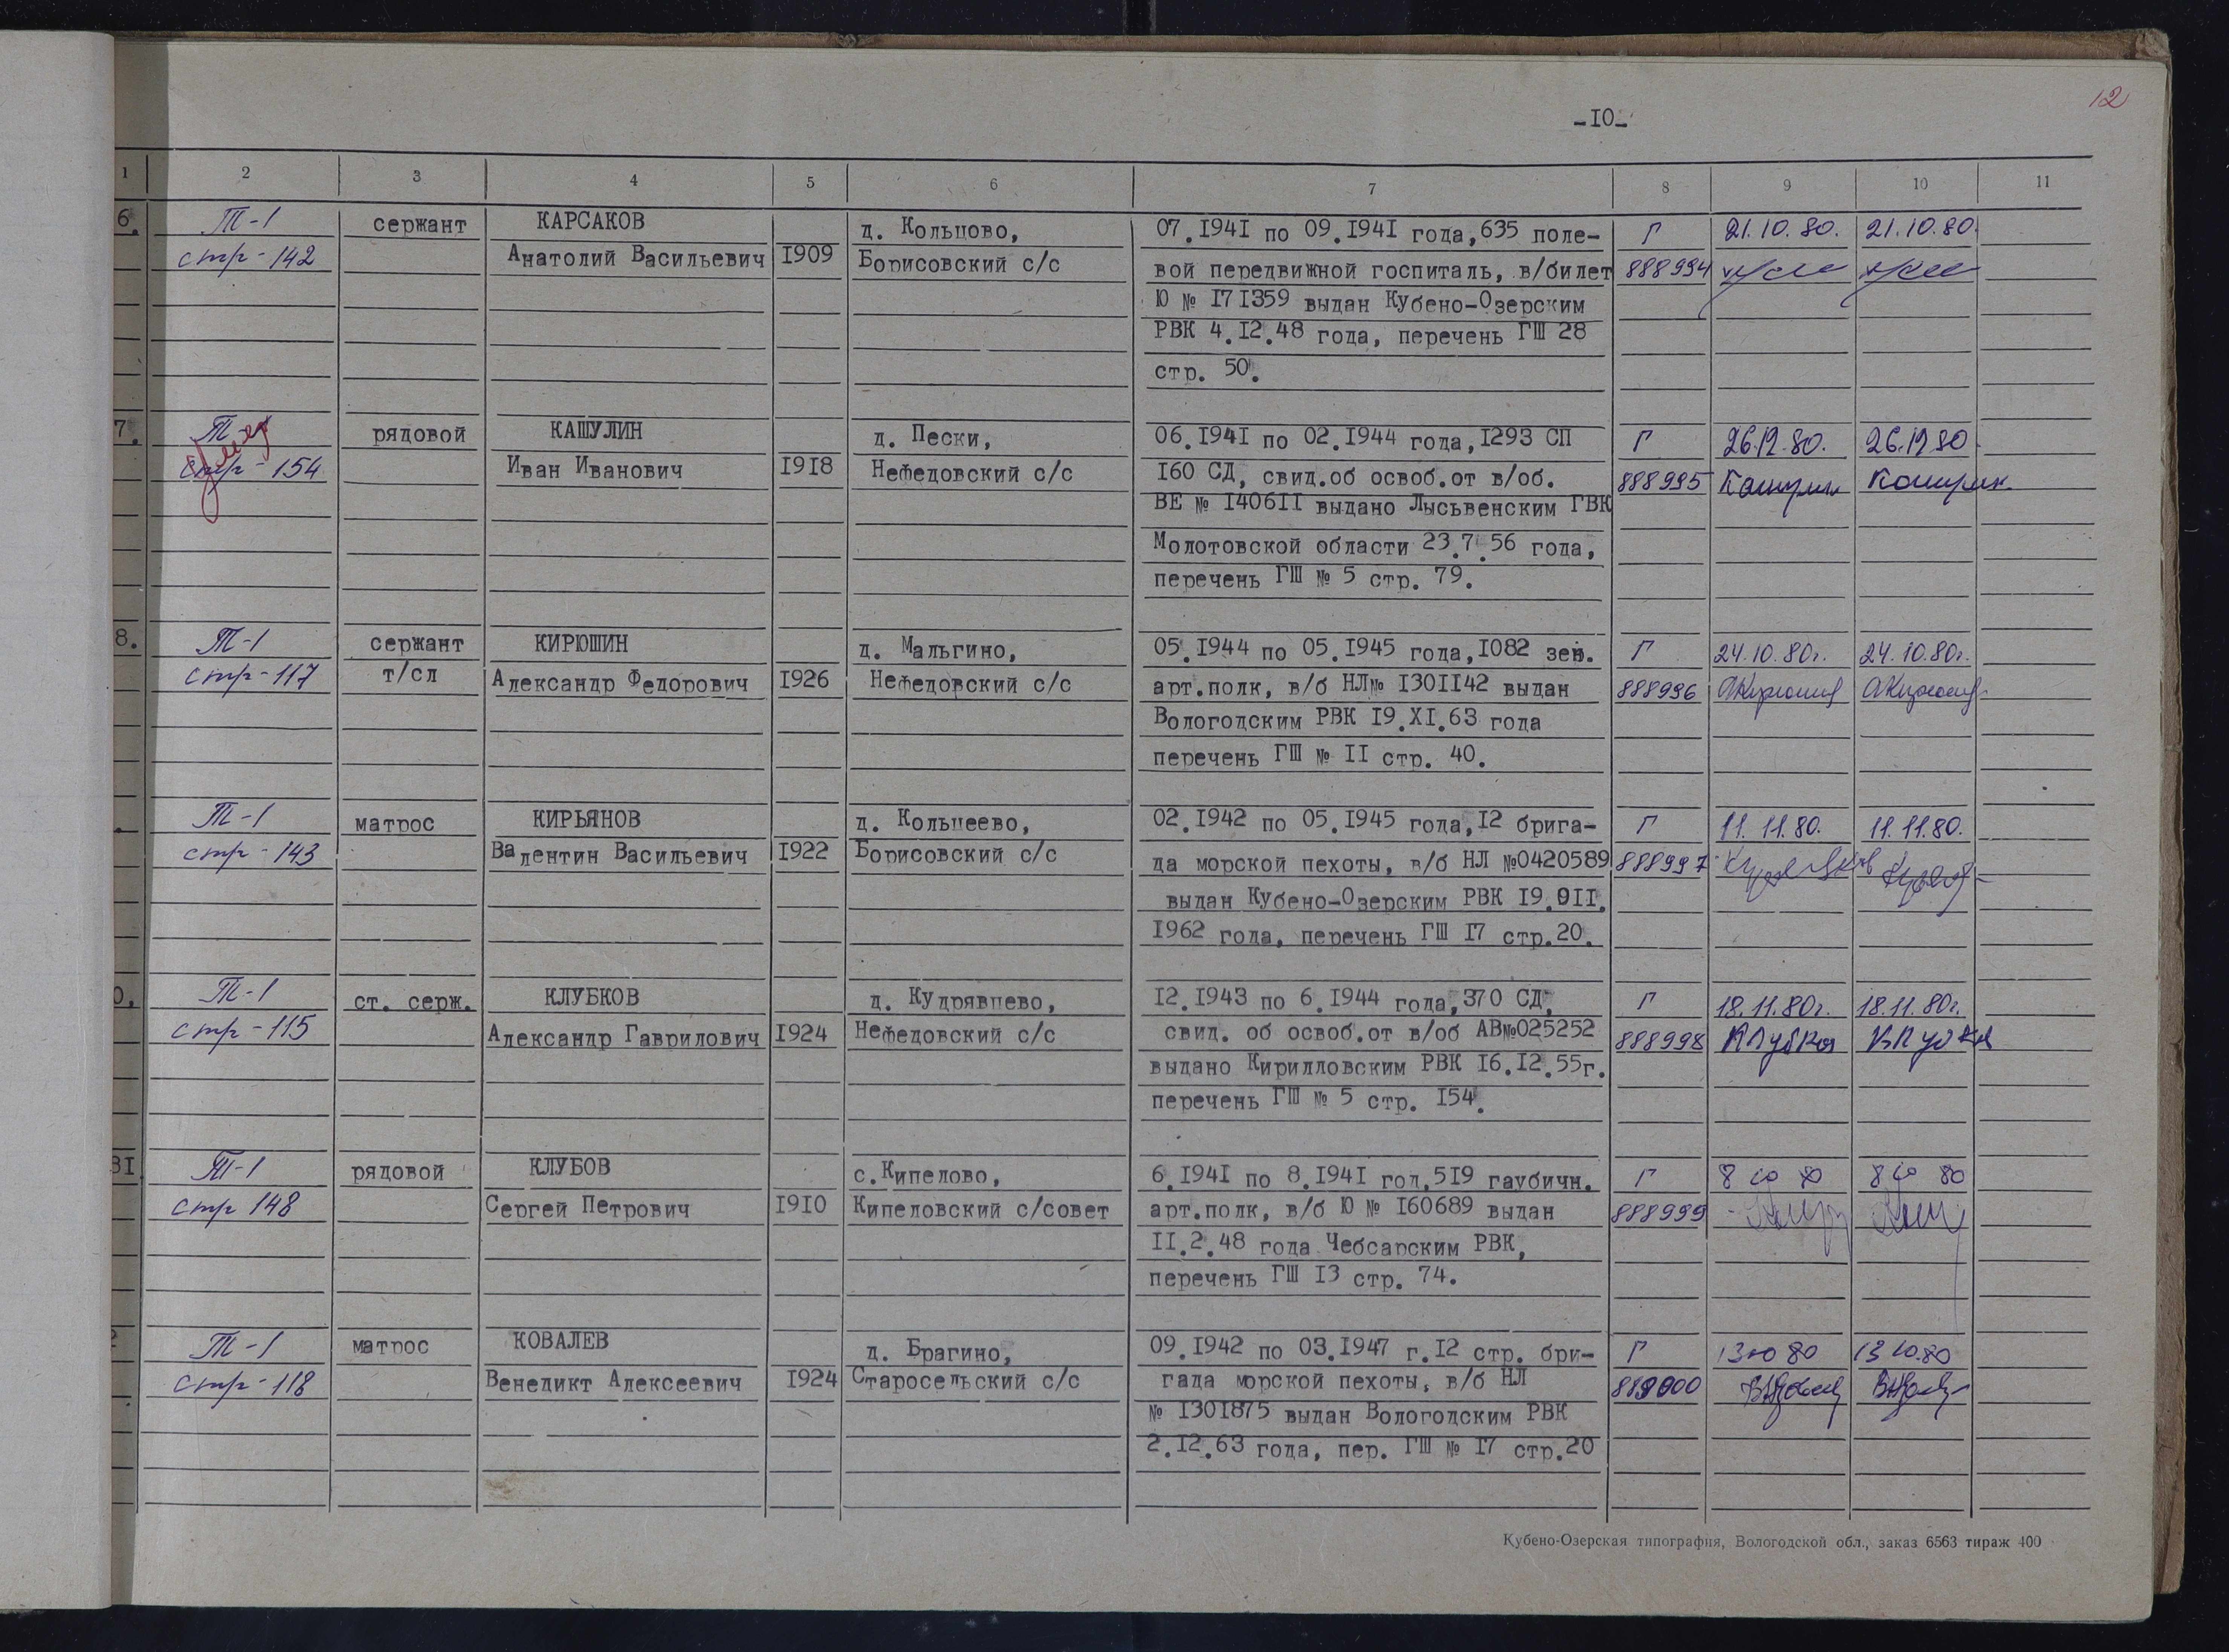 12
-10-
1 2 3 4 5 6 7 8 9 10 11
6. Т-1 сержант КАРСАКОВ д. Кольцово, 07.1941 по 09.1941 года, 635 поле- Г 21.10.80. 21.10.80.
стр-142 Анатолий Васильевич 1909 Борисовский с/с вой передвижной госпиталь, в/билет 888994
Ю № 171359 выдан Кубено-Озерским
РВК 4.12.48 года, перечень ГШ 28
стр. 50.
7. Т-1 рядовой КАШУЛИН д. Пески, 06.1941 по 02.1944 года, 1293 СП Г 26.12.80. 26.12.80
стр-154 Иван Иванович 1918 Нефедовский с/с 160 СД, свид.об освоб.от в/об. 888995 Кашулин Кашулин
ВЕ № 140611 выдано Лысьвенским ГВК
Молотовской области 23.7.56 года,
перечень ГШ № 5 стр. 79.
8. Т-1 сержант КИРЮШИН д. Мальгино, 05.1944 по 05.1945 года, 1082 зен. Г 24.10.80г. 24.10.80г.
стр-117 т/сл Александр Федорович 1926 Нефедовский с/с арт.полк, в/б НЛ№ 1301142 выдан 888996 АКирюшин АКирюшин
Вологодским РВК 19.XI.63 года
перечень ГШ № 11 стр. 40.
. Т-1 матрос КИРЬЯНОВ д. Кольцеево, 02.1942 по 05.1945 года, 12 брига- Г 11.11.80. 11.11.80.
стр-143 Валентин Васильевич 1922 Борисовский с/с да морской пехоты, в/б НЛ №0420589 888997
выдан Кубено-Озерским РВК 19.011.
1962 года, перечень ГШ 17 стр.20.
0. Т-1 ст. серж. КЛУБКОВ д. Кудрявцево, 12.1943 по 6.1944 года, 370 СД, Г 18.11.80г. 18.11.80г.
стр-115 Александр Гаврилович 1924 Нефедовский с/с свид. об освоб.от в/об АВ№025252 888998 Клубков
выдано Кирилловским РВК 16.12.55г.
перечень ГШ № 5 стр. 154.
31 Т-1 рядовой КЛУБОВ с.Кипелово, 6.1941 по 8.1941 год, 519 гаубичн. Г 8 10 80 8 10 80
стр 148 Сергей Петрович 1910 Кипеловский с/совет арт.полк, в/б Ю № 160689 выдан 888999
11.2.48 года Чебсарским РВК,
перечень ГШ 13 стр. 74.
2 Т-1 матрос КОВАЛЕВ д. Брагино, 09.1942 по 03.1947 г. 12 стр. бри- Г 13 10 80 13 10.80
стр-118 Венедикт Алексеевич 1924 Старосельский с/с гада морской пехоты, в/б НЛ 889000
№ 1301875 выдан Вологодским РВК
2.12.63 года, пер. ГШ № 17 стр.20
Кубено-Озерская типография, Вологодской обл., заказ 6563 тираж 400